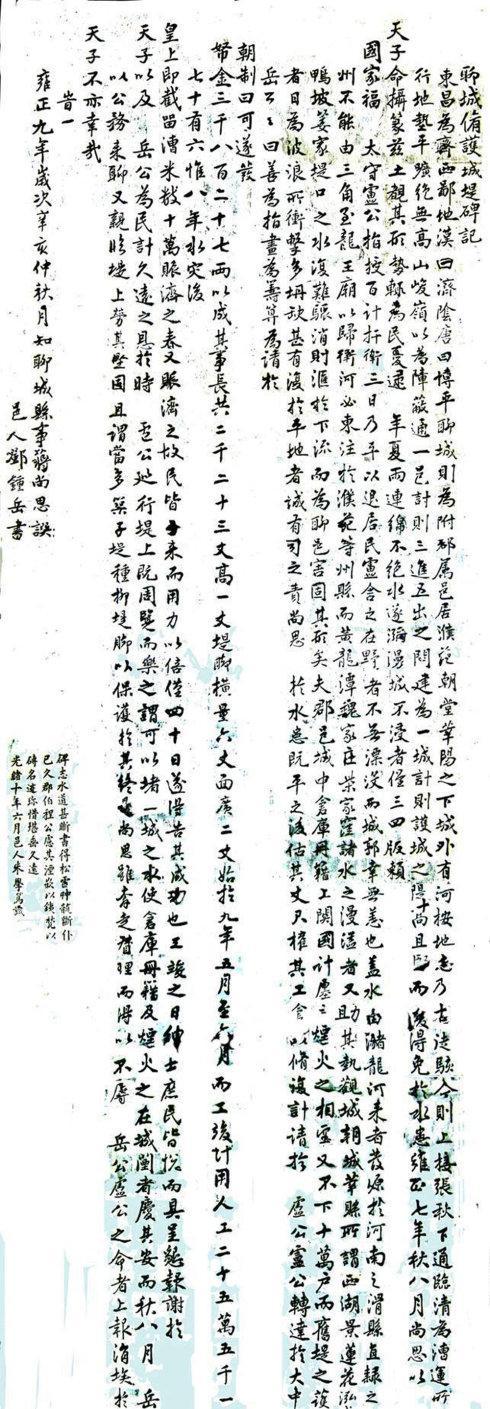 聊城修護城堤碑記
東昌為齊西鄙地漢曰濟陰唐曰博平聊城則為附郡屬邑居濮范朝堂莘陽之下城外有河按地志乃古法駭今則上接張秋下通臨清為漕運所
行地墊平曠絕無高山峻嶺以為障蔽通一邑計則三進五出之閘建為一城計則護城之隄高且而後得免於水患雍正七年秋八月尚思以
天子命攝篆茲土觀其形勢輒為民憂逮年夏雨連綿不絕水遂瀰漫城不浸者僅三四版賴
國家福太守盧公指授百計扞衛三日乃平以退居民廬舍之在野者不無漂沒而城郭幸無恙也蓋水由瀦龍河來者發源於河南之滑縣直隸之
州不能由三角至龍王廟以歸衛河必東注於濮范等州縣而黃龍潭魏家庄柴家窪諸水之漫溢者又助其勢觀城朝城莘縣所謂西湖景蓮花泓
鴨坡姜家堤口之水復難驟消則滙於下流而為聊邑害固其形矣夫郡邑城中倉庫冊籍上関國計塵煙火之相望又不下十萬户而舊堤之護
者日為波浪所衝擊多坍缺甚有復於平地者誠有司之責尚思於水患既平之後估其丈尺榷其工食以脩復計請於盧公盧公轉達於大中
岳公公曰善為指畫為籌算為請於
朝制曰可遂發
帑金三千八百二十七兩以成其事長共二千二十三丈高一丈堤腳橫量六丈面廣二丈始於九年五月至六月而工竣計用人工二十五萬五千一
七十有六惟八年水灾後
皇上即截留漕米數十萬賑濟之春又賑濟之故民皆子來而用力以倍僅四十日遂得告其成功也工竣之日紳士庶民皆悅而具呈懇報謝於
天子以及岳公為民計久遠之恩於時盧公地行堤上既周覽而樂之謂可以堵一城之水使倉庫冊籍及煙火之在城闉者慶其安而秋八月岳
以公務来聊又親臨堤上勞其堅固且謂當多募子堤種柳堤腳以保護於其終尚思雖奉之督理而得以不辱岳公盧公之命者上報涓埃於
天子不亦幸哉
旹一
雍正九年歲次辛亥仲秋月知聊城縣事蔣尚思譔
邑人鄧鍾岳書
碑志水道甚晰書得松雪神髓斷仆
已久郡伯程公慮其湮嵌以鐵梵以
磚名道珎惜堪垂久遠
光緒十年六月邑人朱學篤識